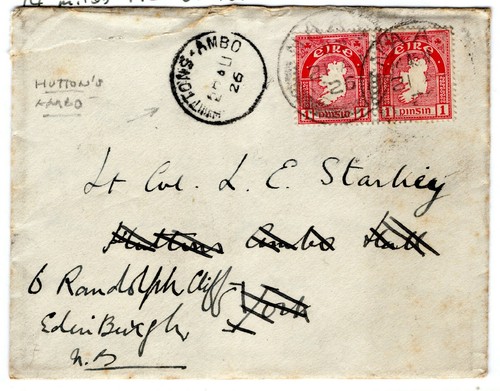 HUTTONS · AMBO
26
ÉIRE
1 PINSIN 1
ÉIRE
1 PINSIN 1
HUTTON'S
AMBO
Lt Col. L. E. Starkey
Huttons Ambo Hall
York
6 Randolph Cliff
Edinburgh
N.B